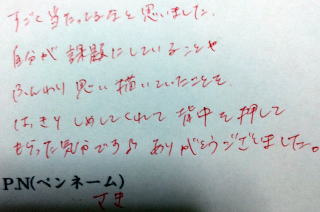 すごく当たってるなと思いました。
自分が課題にしていることや
ふんわり思い描いていたことを
はっきりしめしてくれて背中を押して
もらった気分です♪ ありがとうございました。
P.N(ペンネーム)
さき